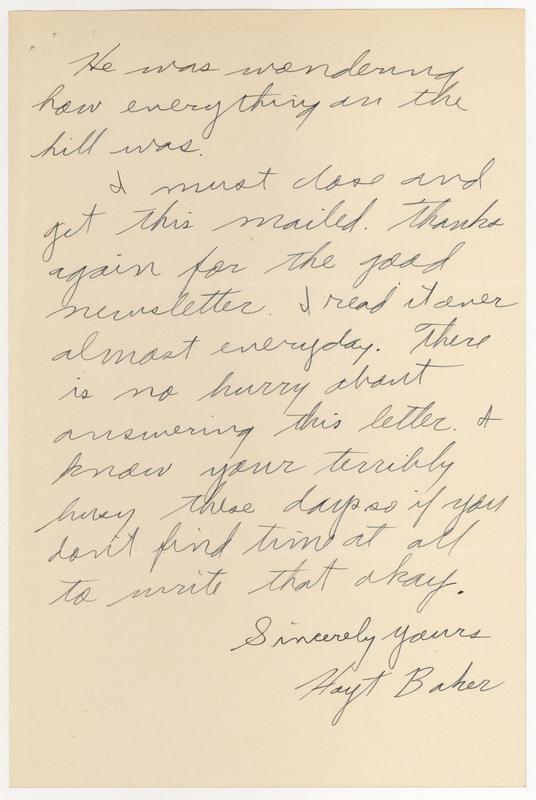 He was wondering
how everything on the
hill was.
I must close and
get this mailed. Thanks
again for the good
newsletter. I read it over
almost everyday. There
is no hurry about
answering this letter. I
know your terribly
busy these days so if you
don't find time at all
to write that okay.
Sincerely yours
Hoyt Baker